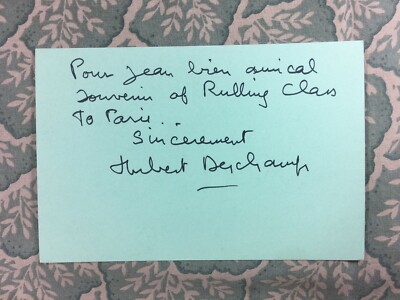 Pour Jean bien amical
souvenir of Rulling Class
To Paris...
Sincerement
Hubert Deschamps